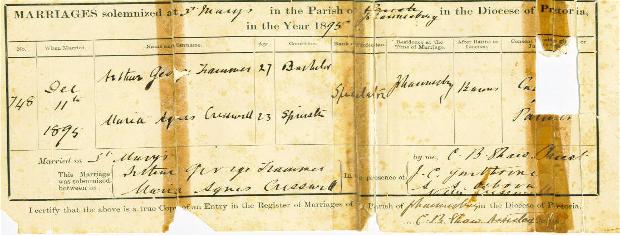 MARRIAGES solemnized at St Marys in the Parish of Johannesburg in the Diocese of Pretoria,
in the Year 1895
No. When Married. Name and Surname. Age. Condition. Rank or Profession. Residence at the Time of Marriage. After Banns or Licence
748 Dec 11th 1895
Arthur George Trammer 27 Bachelor Speculator Johannesburg Banns
Maria Agnes Cresswell 23 Spinster
Married at St Marys by me, C B Shaw
This Marriage was solemnized between us
Arthur George Trammer
Maria Agnes Cresswell
In the presence of
J. C.
I certify that the above is a true Copy of an Entry in the Register of Marriages of Parish of Johannesburg in the Diocese of Pretoria.
C B Shaw